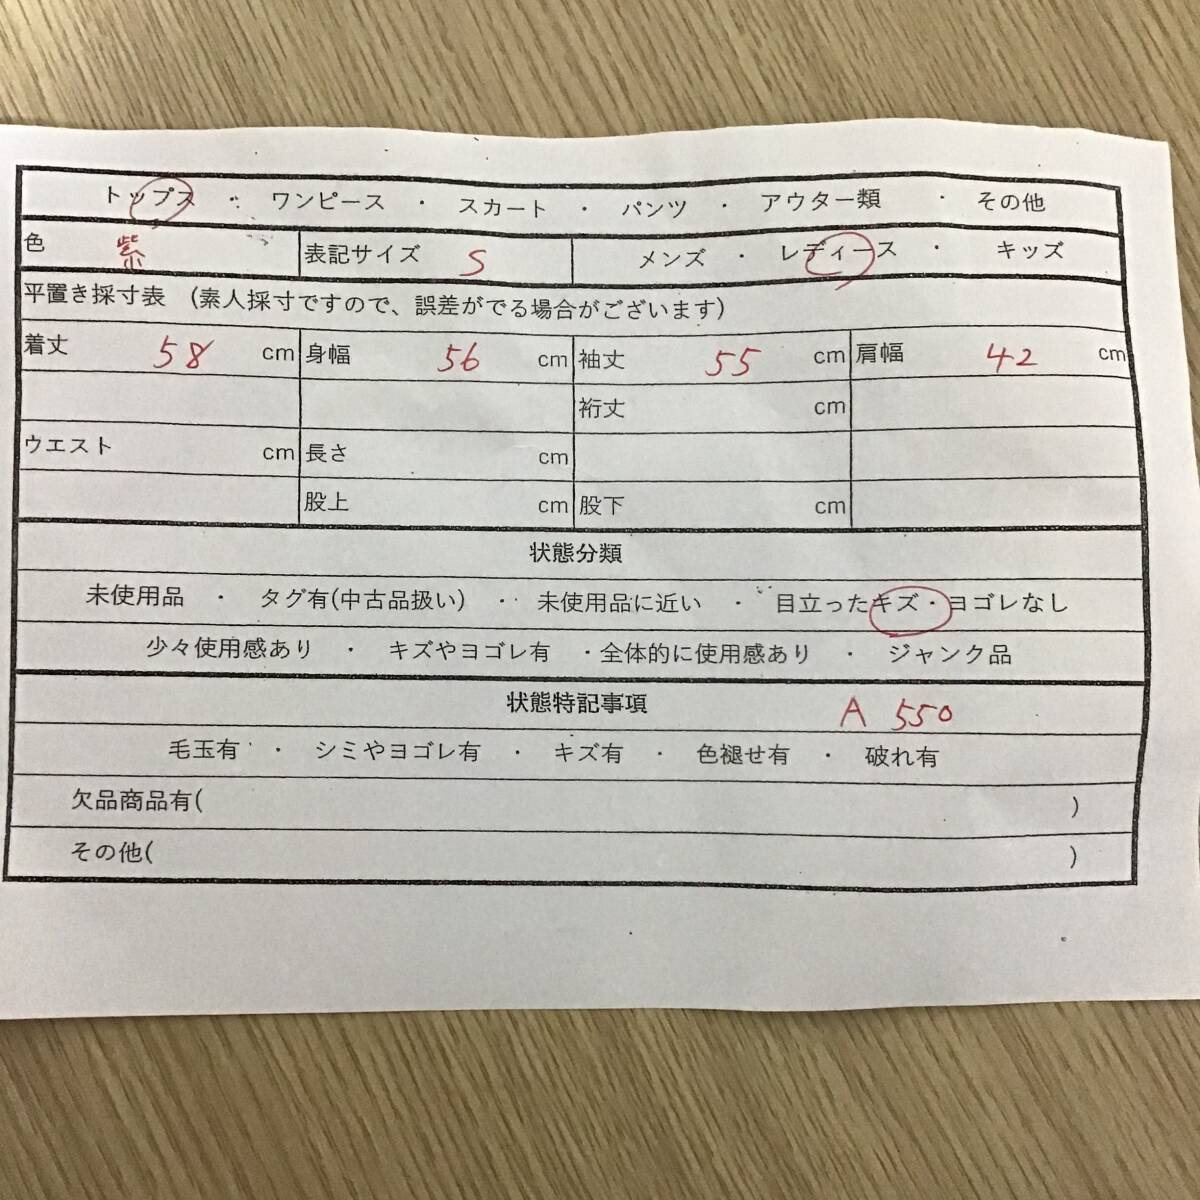 トップス ・ ワンピース ・ スカート ・ パンツ ・ アウター類 ・ その他
色 紫 表記サイズ S メンズ ・ レディース ・ キッズ
平置き採寸表 (素人採寸ですので、誤差がでる場合がございます)
着丈 58 cm 身幅 56 cm 袖丈 55 cm 肩幅 42 cm
裄丈 cm
ウエスト cm 長さ cm
股上 cm 股下 cm
状態分類
未使用品 ・ タグ有(中古品扱い) ・ 未使用品に近い ・ 目立ったキズ・ヨゴレなし
少々使用感あり ・ キズやヨゴレ有 ・全体的に使用感あり ・ ジャンク品
状態特記事項 A 550
毛玉有 ・ シミやヨゴレ有 ・ キズ有 ・ 色褪せ有 ・ 破れ有
欠品商品有( )
その他( )